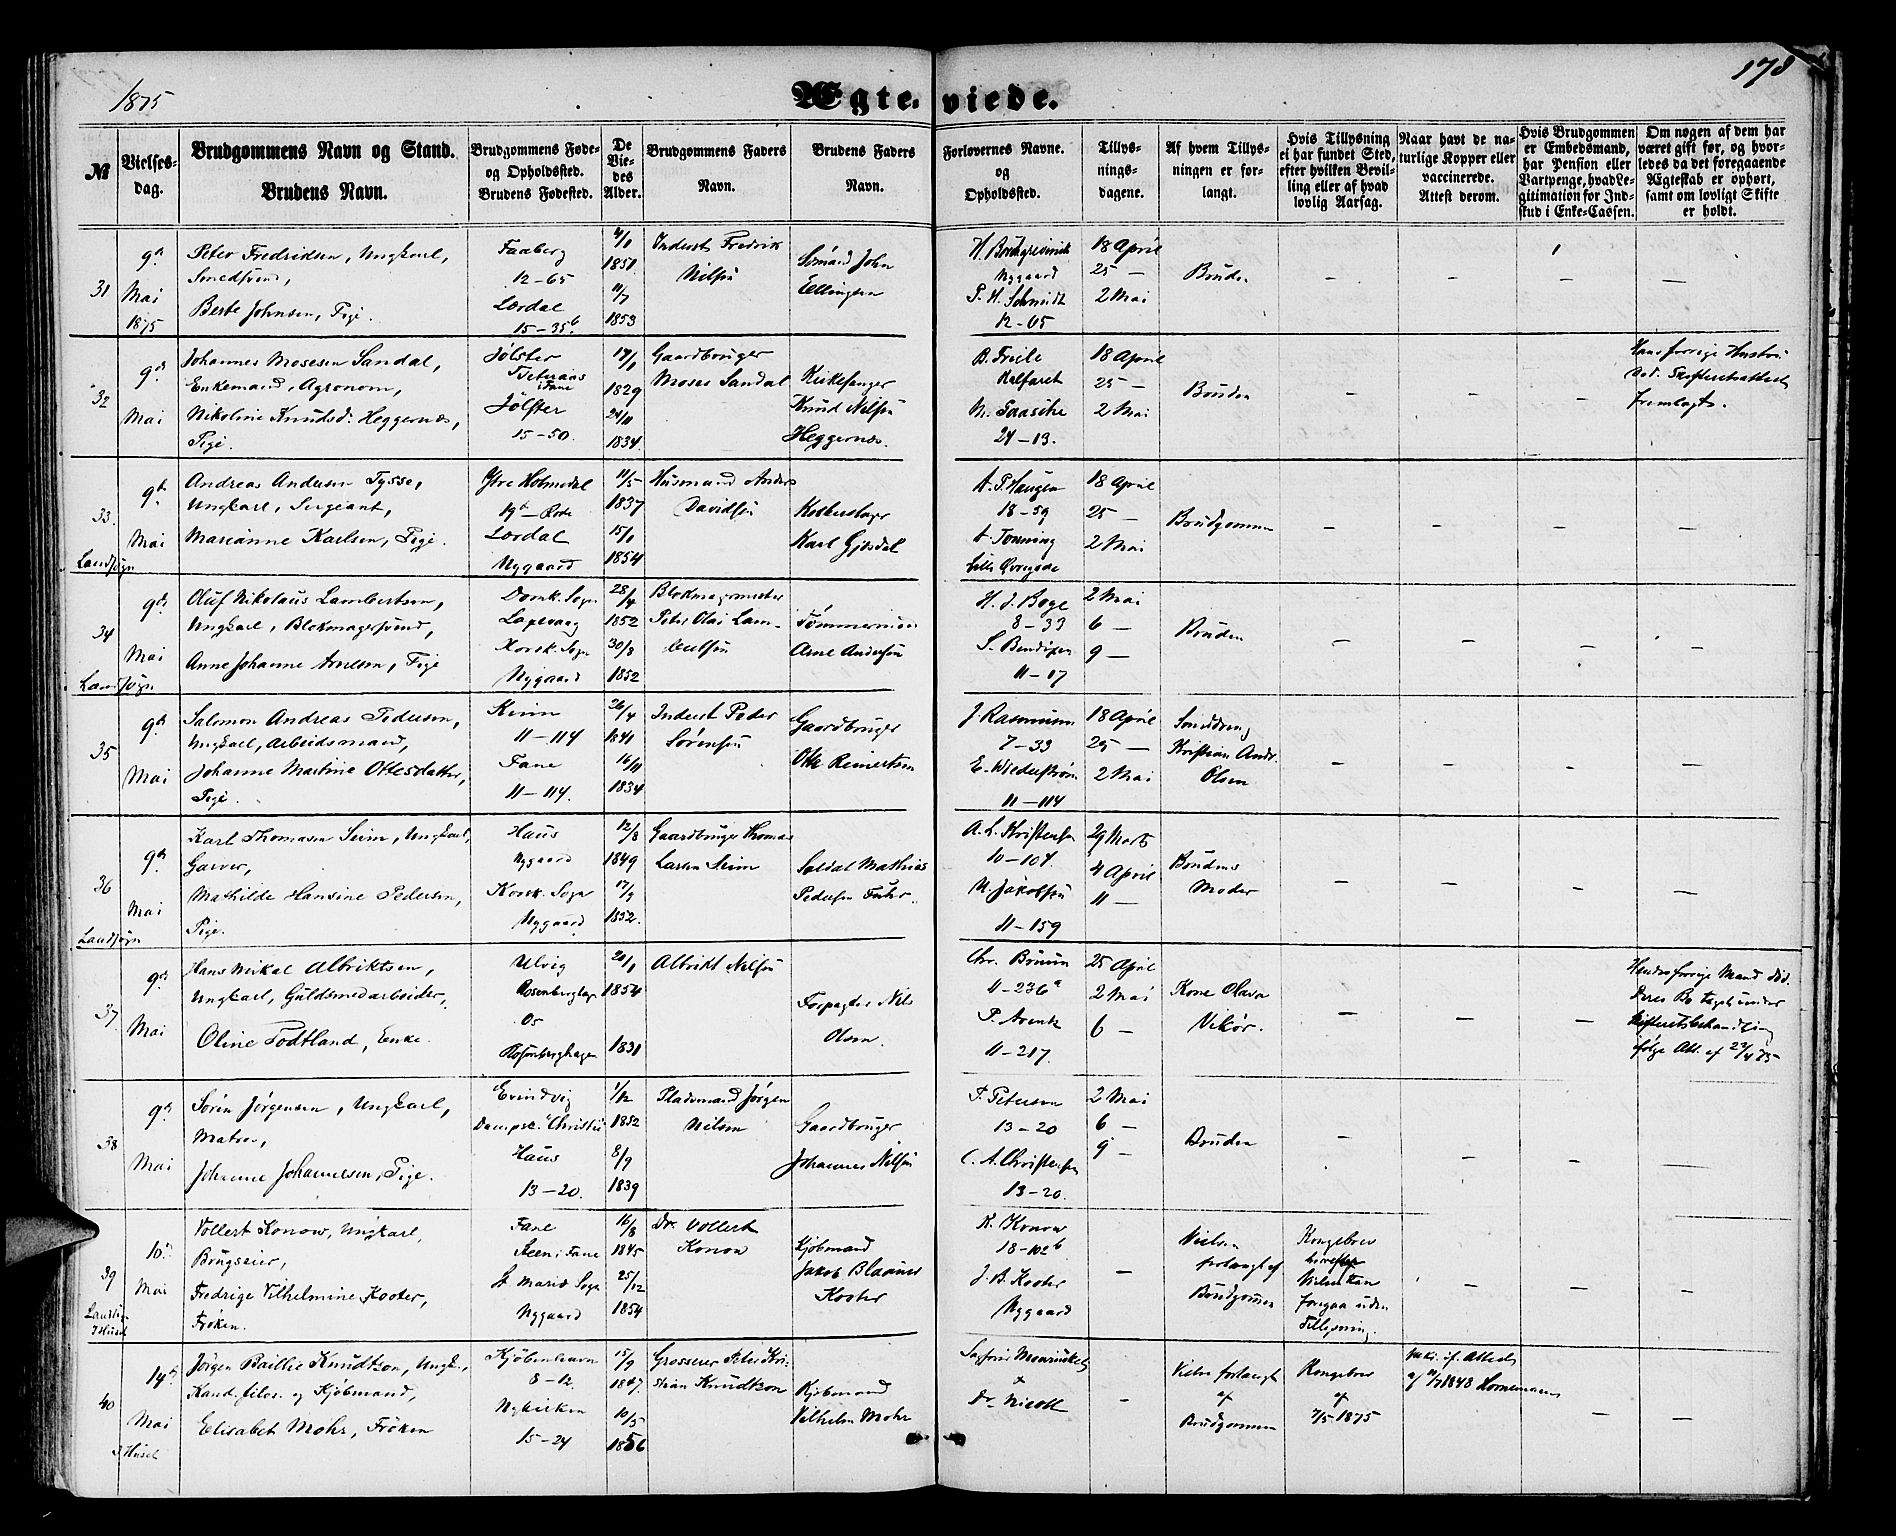 1875
Ægteviede.
178
№
Vielses-
dag.
Brudgommens Navn og Stand.
Brudens Navn.
Brudgommens Føde-
og Opholdssted.
Brudens Fødested.
De
Vie-
des
Alder.
Brudgommens Faders
Navn.
Brudens Faders
Navn.
Forlovernes Navne.
og
Opholdssted.
Tillys-
nings-
dagene.
Af hvem Tillys-
ningen er for-
langt.
Hvis Tillysning
ei har fundet Sted,
efter hvilken Bevil-
ling eller af hvad
lovlig Aarsag.
Naar havt de na-
turlige Kopper eller
vaccinerede.
Attest derom.
Hvis Brudgommen
er Embedsmand,
har Pension eller
Vartpenge, hvad Le-
gitimation for Ind-
skud i Enke-Cassen.
Om nogen af dem har
været gift før, og hvor-
ledes da det foregaaende
Ægteskab er ophørt,
samt om lovligt Skifte
er holdt.
31
9de
Mai
1875
Peter Fredriksen, Ungkarl,
Smedsvend,
Berte Johnsen, Pige.
Faaberg
12-65
Lærdal
15-35b
4/1
1851
11/7
1853
Inderst Fredrik
Nilsen
Sømand John
Ellingsen
Nygaard
P. H. Schmidt
12-65
18 April
25 —
2 Mai
Bruden
32
9de
Mai
Johannes Mosesen Sandal,
Enkemand, Agronom,
Nikoline Knudsd. Heggernæs,
Pige.
Jølster
i Fane
Jølster
15-50.
1829
24/11
1834
Gaardbruger
Moses Sandal
Kirkesanger
Knud Nilsen
Heggernæs.
B. Friele
Kalfaret
24-13.
18 April
25 —
2 Mai
Bruden
Hans forrige Hustru
død. Skifteretsattest
fremlagt.
33.
9de
Mai
Landsogn
Andreas Andersen Tysse,
Ungkarl, Sergeant,
Marianne Karlsen, Pige.
Ytre Holmedal
19de Rode
Lærdal
Nygaard
11/5
1837
15/1
1854
Husmand Anders
Davidsen
Karl Gjøsdal
18-59
A. Tonning
Lille Øvregade
18 April
25 —
2 Mai
Brudgommen
34
9de
Mai
Landsogn
Oluf Nikolaus Lambertsen,
Ungkarl, Blokmagersvend,
Anne Johanne Arnesen, Pige
Domk. Sogn
Laxevaag
Korsk. Sogn
Nygaard
28/4
1852
30/8
1852
Blokmagermester
Peter Olai Lam-
bertsen
Tømmermand
Arne Andersen
8-33
S. Bendixen
11-17
2 Mai
6 —
9 —
Bruden
35
9de
Mai
Salomon Andreas Pedersen,
Ungkarl, Arbeidsmand,
Johanne Martine Ottesdatter,
Pige.
Kinn
11-114
Fane
11-114.
26/4
1841
16/11
1834
Inderst Peder
Sørensen
Gaardbruger
Otte Reinertsen
J. Rasmussen
7-33
E. Wiederstrøm
11-114
18 April
25 —
2 Mai
Smeddreng
Kristian Andr.
Olsen
36
9de
Mai
Landsogn
Karl Thomasen Seim, Ungkarl,
Garver,
Mathilde Hansine Pedersen,
Pige.
Haus
Nygaard
Korsk. Sogn
Nygaard
12/8
1849
17/9
1852.
Gaardbruger Thomas
Larsen Seim
Soldat Mathias
Pedersen Fuhr.
A. L. Kristensen
10-104.
M. Jakobsen
11-159
29 Marts
4 April
11 —
Brudens
Moder
37.
9de
Mai
Hans Mikal Albriktsen,
Ungkarl, Guldsmedarbeider,
Oline Todtland, Enke.
Ulvig
Os
20/1
1854
1831
Albrikt Nilsen
Forpagter Nils
Olsen.
Chr. Bruun
11-236a
P. Arentz
11-217.
25 April
2 Mai
6 —
Kone Olava
Vikør.
Hendes forrige Mand død.
Deres Bo tages under
Skifteretsbehandling
ifølge Att. af 23/4 75-
38
9de
Mai
Søren Jørgensen, Ungkarl,
Matros,
Johanne Johannesen, Pige.
Evindvig
Haus
13-20.
1/12
1852
8/9
1839
Pladsmand Jørgen
Nilsen
Gaardbruger
Johannes Nilsen
P. Petersen
13-20
C. A. Christensen
13-20.
2 Mai
6 —
9 —
Bruden
39
10de
Mai
Landsogn
I Huset
Vollert Konow, Ungkarl,
Brugseier,
Fredrige Vilhelmine Kooter,
Frøken.
Fane
Steen i Fane
St. Mariæ Sogn
Nygaard
16/8
1845
25/12
1854
Dr. Vollert
Konow
Kjøbmand
Jakob Blaauw
Kooter
K. Konow
18-102b
J. B. Kooter
Nygaard
Vielsen
forlangt af
Brudgommen
Kongebrev
hvorefter
Vielse kan
foregaa uden
Tillysning.
40
14de
Mai
I Huset
Jørgen Baillie Knudtzon, Ungk.,
Kand. filos. og Kjøbmand,
Elisabet Mohr, Frøken
Kjøbenhavn
8-12.
Nykirken
15-24
15/9
1847.
10/5
1856
Grosserer Peter Kri-
stian Knudtzon
Kjøbmand
Vilhelm Mohr
&
Dr. Nicoll
Vielse forlangt
af
Brudgommen
Kongebrev
af
7/5 1875
Vakc. if. Attest
1848 Hornemann